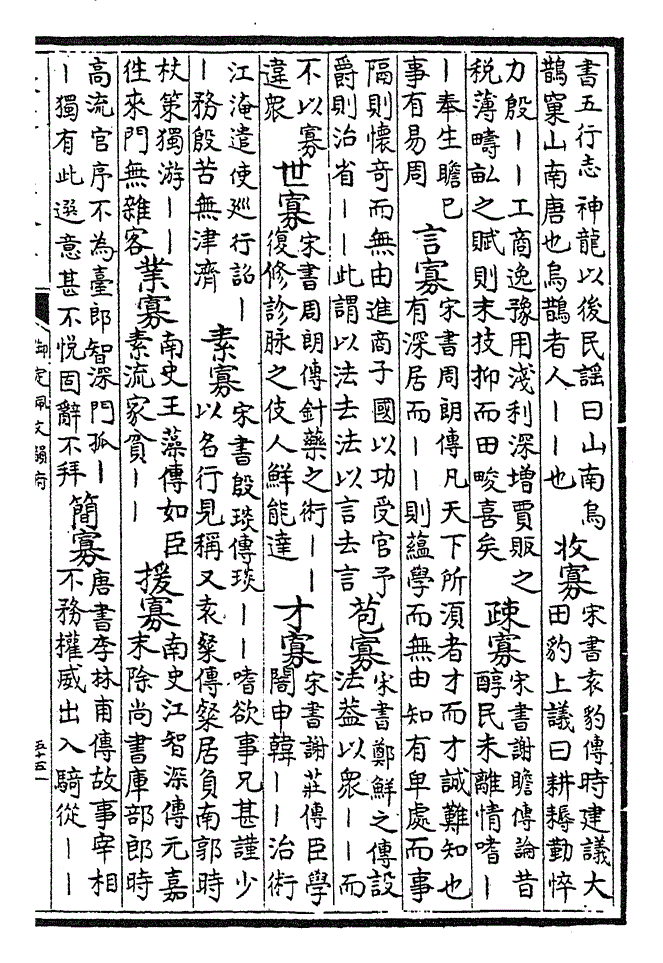 書五行志神龍以後民謡曰山南烏
鵲窠山南唐也烏鵲者人丨丨也
收寡
宋書袁豹傳時建議大
田豹上議曰耕耨勤悴
力殷丨丨工商逸豫用淺利深増賈販之
税薄疇畝之賦則末技抑而田畯喜矣
疎寡
宋書謝瞻傳論昔
醇民未離情嗜丨
丨奉生贍已
事有易周
言寡
宋書周朗傳凡天下所須者才而才誠難知也
有深居而丨丨則藴學而無由知有卑處而事
隔則懷竒而無由進商子國以功受官予
爵則治省丨丨此謂以法去法以言去言
苞寡
宋書鄭鮮之傳設
法葢以衆丨丨而
不以寡
違衆
世寡
宋書周朗傳針藥之術丨丨
復修診脉之伎人鮮能達
才寡
宋書謝莊傳臣學
闇申韓丨丨治術
江淹遣使廵行詔丨
丨務殷苦無津濟
素寡
宋書殷琰傳琰丨丨嗜欲事兄甚謹少
以名行見稱又袁粲傳粲居負南郭時
杖策獨游丨丨
徃來門無雜客
業寡
南史王藻傳如臣
素流家貧丨丨
援寡
南史江智深傳元嘉
末除尚書庫部郎時
高流官序不為臺郎智深門孤丨
丨獨有此選意甚不悦固辭不拜
簡寡
唐書李林甫傳故事宰相
不務權威出入騎從丨丨
御定佩文韻府